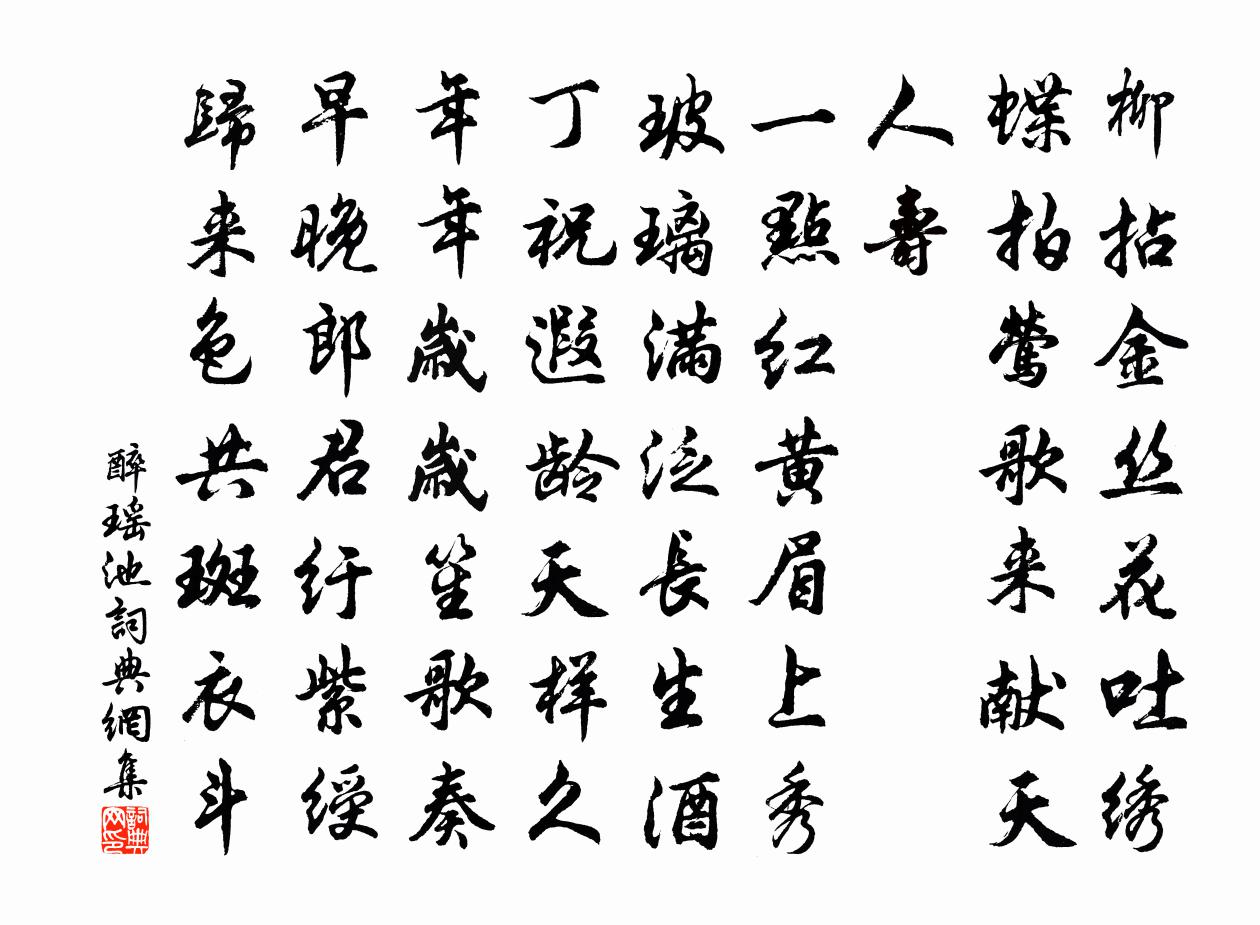 柳拈金丝花吐绣
蝶拍莺歌来献天
人壽
一點红黄眉上秀
玻璃满泛長生酒
丁祝遐龄天样久
年年歳歳笙歌奏
早晚郎君纡紫綬
歸来色共斑衣斗
醉瑶池詞典網集
詞典网印